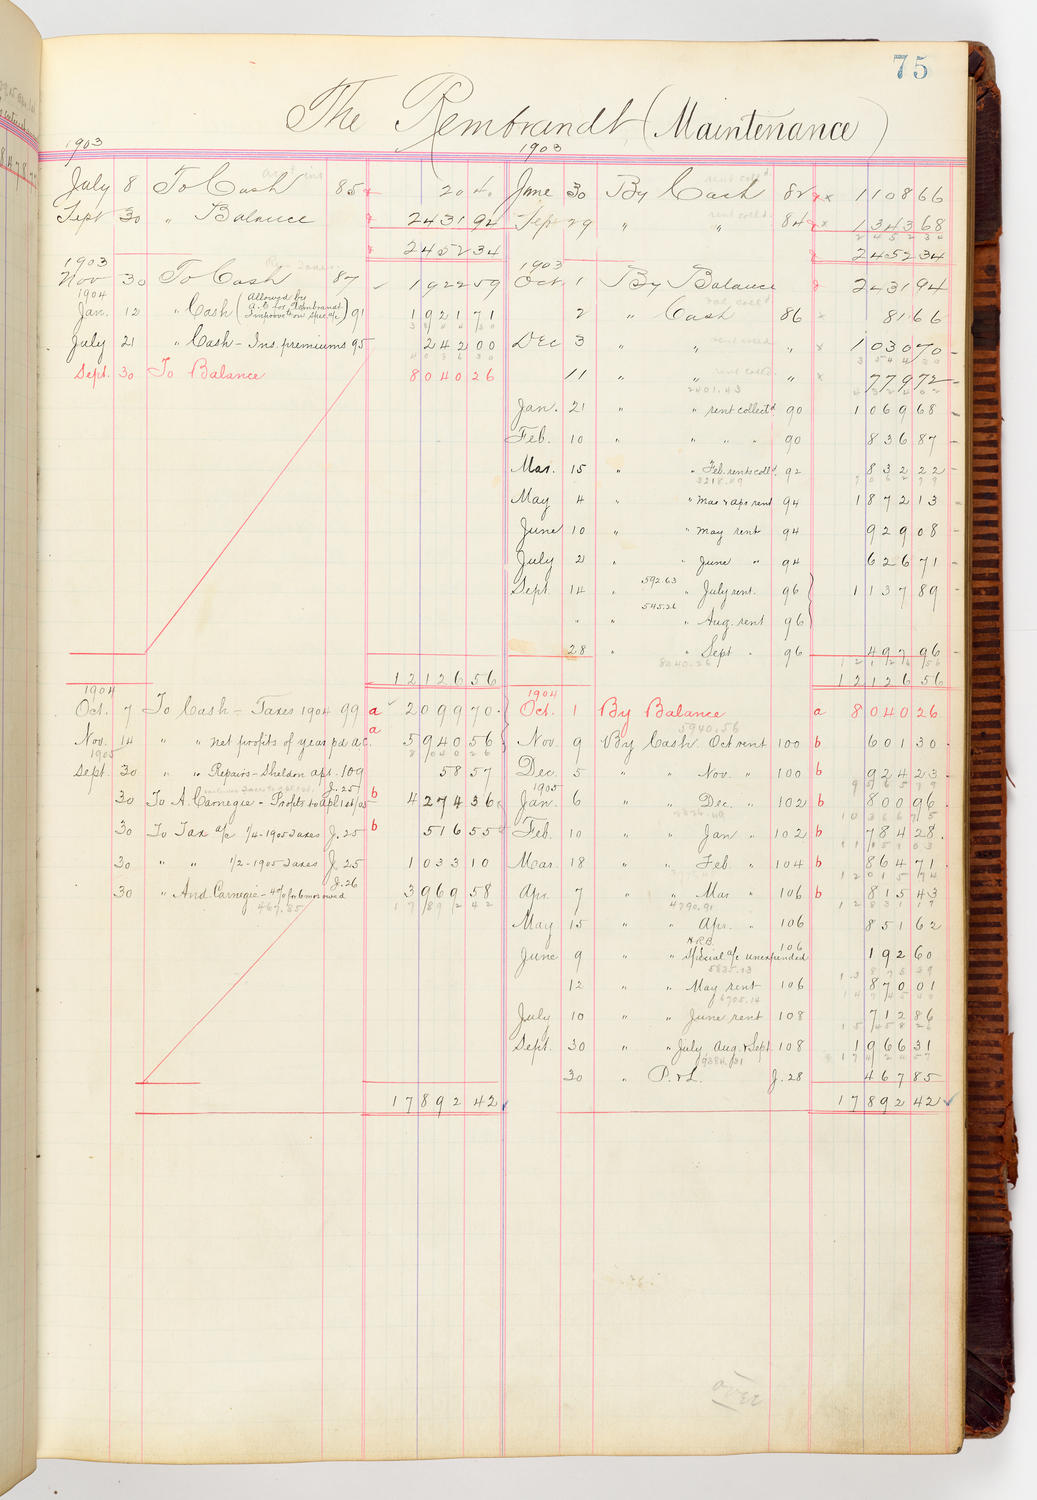 75
The Rembrandt (Maintenance)
1903
July 8 To Cash 85 20 40
Sept 30 " Balance 2431 92
2452 34
1903
Nov 30 To Cash 87 1922 59
1904
Jan. 12 " Cash (Allowed by a/c for Rembrandt Improvet on spec a/c) 91 1921 71
July 21 " Cash - Ins. premiums 95 242 00
Sept. 30 To Balance 8040 26
12126 56
1904
Oct. 7 To Cash - Taxes 1904 99 a 2099 70
Nov. 14 " " net profits of year pd. A.C. a 5940 56
1905
Sept. 30 " " Repairs - Sheldon apt. 109 58 57
30 To A. Carnegie - Profits to Apl 1st/05 J. 25 b 4274 36
30 To Tax a/c 1/4 - 1905 Taxes J. 25 b 516 55
30 " " 1/2 - 1905 Taxes J. 25 1033 10
30 " And. Carnegie - 4% for 6 mos owed J. 26 3969 58
467.85
17892 42
1903
June 30 By Cash 82 x 1108 66
Sept 29 " " 84 x 1343 68
2452 34
1903
Oct. 1 By Balance 2431 94
2 " Cash 86 x 81 66
Dec 3 " " " x 1030 70
11 " " " x 779 72
2401.43
Jan. 21 " " rent collectd 90 1069 68
Feb. 10 " " " " 90 836 87
Mar. 15 " " Feb. rents colld. 92 832 22
3218.09
May 4 " " Mar & Apr rent 94 1872 13
June 10 " " may rent 94 929 08
July 2 " " June " 94 626 71
Sept. 14 " 592.63 " July rent. 96 1137 89
" " 545.26 " Aug. rent 96
28 " " Sept " 96 497 96
8040.26
12126 56
1904
Oct. 1 By Balance a 8040 26
5940.56
Nov. 9 By Cash Oct rent 100 b 601 30
Dec. 5 " " Nov. " 100 b 924 23
1905
Jan. 6 " " Dec. " 102 b 800 96
Feb. 10 " " Jan " 102 b 784 28
Mar. 18 " " Feb. " 104 b 864 71
Apr. 7 " " Mar " 106 b 815 43
4790.91
May 15 " " Apr. " 106 851 62
June 9 " " N.R.B. Special a/c unexpended 106 192 60
5835.13
12 " " May rent 106 870 01
6705.14
July 10 " " June rent 108 712 86
Sept. 30 " " July Aug. & Sept. 108 1966 31
9384.31
30 " P. & L. J. 28 467 85
17892 42
over